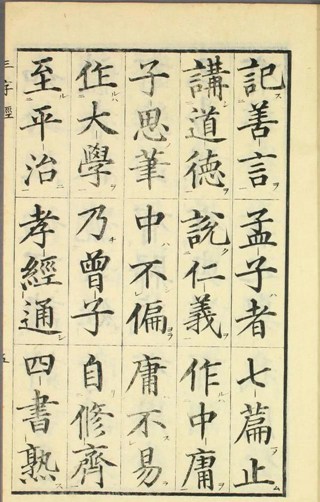 記善言孟子者七篇止
講道德說仁義作中庸
子思筆中不偏庸不易
作大學乃曾子自修齊
至平治孝經通四書熟
三字經
五